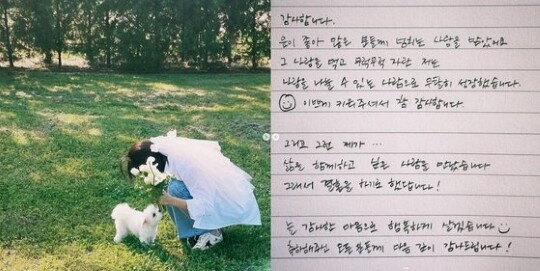 감사합니다.
운이 좋아 많은 분들께 넘치는 사랑을 받았어요
그 사랑을 먹고 무럭무럭 자란 저는
사랑을 나눌 수 있는 사람으로 두둑히 성장했습니다.
이만큼 키워주셔서 참 감사합니다.
그리고 그런 제가 ...
삶을 함께하고 싶은 사람을 만났습니다
그래서 결혼을 하기로 했답니다!
늘 감사한 마음으로 행복하게 살겠습니다
축하해주신 모든 분들께 마음 깊이 감사드립니다!